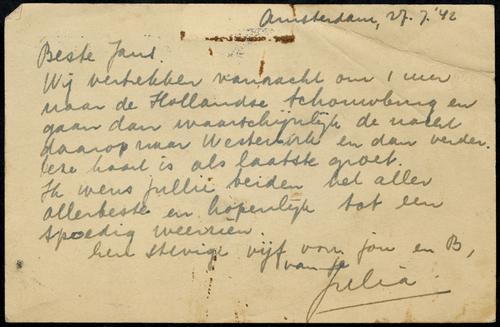 Amsterdam, 27.7.'42
Beste Jans.
Wij vertrekken vannacht om 1 uur
naar de Hollandse Schouwburg en
gaan dan waarschijnlijk de nacht
daarop naar Westerbork en dan verder.
Deze kaart is als laatste groet.
Ik wens jullie beiden het aller
allerbeste en hopenlijk tot een
spoedig weerzien.
Een stevige vijf voor jou en B,
van
Julia.